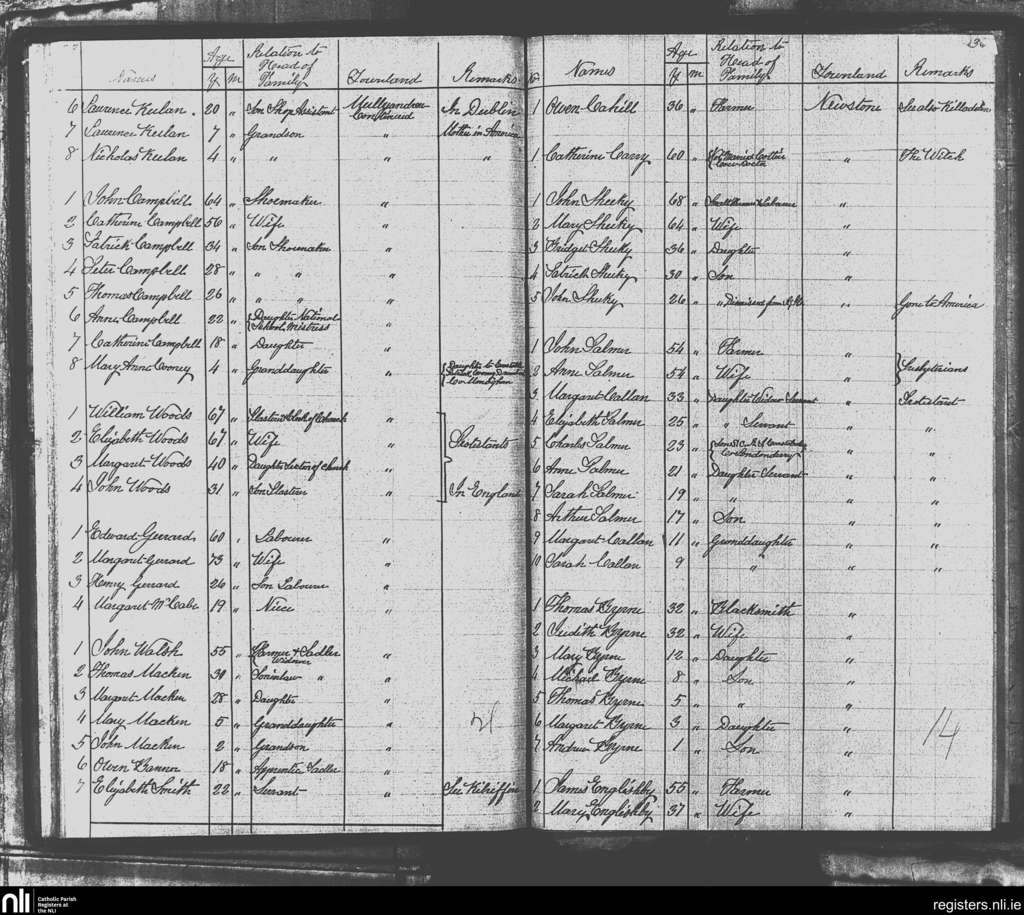 Names Age Relation to Head of Family Townland Remarks
Y M
6 Laurence Keelan 20 " Son Shop Assistant Mullyandran Continued In Dublin
7 Laurence Keelan 7 " Grandson " Mother in America
8 Nicholas Keelan 4 " " " "
1 John Campbell 64 " Shoemaker "
2 Catherine Campbell 56 " Wife "
3 Patrick Campbell 34 " Son Shoemaker "
4 Peter Campbell 28 " " " "
5 Thomas Campbell 26 " " " "
6 Anne Campbell 22 " Daughter National School Mistress "
7 Catherine Campbell 18 " Daughter "
8 Mary Anne Cooney 4 " Granddaughter " Daughter to Co. Monaghan
1 William Woods 67 " Clerk of Church "
2 Elizabeth Woods 67 " Wife " Protestants
3 Margaret Woods 40 " Daughter Sexton of Church "
4 John Woods 31 " Son " In England
1 Edward Gerrard 60 " Labourer "
2 Margaret Gerrard 73 " Wife "
3 Henry Gerrard 26 " Son Labourer "
4 Margaret McCabe 19 " Niece "
1 John Walsh 55 " Farmer & Sadler Widower "
2 Thomas Macken 30 " Soninlaw " "
3 Margaret Macken 28 " Daughter "
4 Mary Macken 5 " Granddaughter "
5 John Macken 2 " Grandson "
6 Owen Bannon 18 " Apprentice Sadler "
7 Elizabeth Smith 22 " Servant " See Kilriffin
No Names Age Relation to Head of Family Townland Remarks
Y M
1 Owen Cahill 36 " Farmer Newstone See also
1 Catherine Carry 60 " Not Married " The Witch
1 John Sheeky 68 " Small Farmer & Labourer "
2 Mary Sheeky 64 " Wife "
3 Bridget Sheeky 36 " Daughter "
4 Patrick Sheeky 30 " Son "
5 John Sheeky 26 " " Dismissed from " Gone to America
1 John Salmer 54 " Farmer "
2 Anne Salmer 54 " Wife " Presbyterians
3 Margaret Callan 33 " Daughter Widow Servant " Protestant
4 Elizabeth Salmer 25 " " Servant " "
5 Charles Salmer 23 " Son Constabulary Co. Londonderry " "
6 Anne Salmer 21 " Daughter Servant " "
7 Sarah Salmer 19 " " " "
8 Arthur Salmer 17 " Son " "
9 Margaret Callan 11 " Granddaughter " "
10 Sarah Callan 9 " " "
1 Thomas Byrne 32 " Blacksmith "
2 Judith Byrne 32 " Wife "
3 Mary Byrne 12 " Daughter "
4 Michael Byrne 8 " Son "
5 Thomas Byrne 5 " " "
6 Margaret Byrne 3 " Daughter "
7 Andrew Byrne 1 " Son "
14
1 James Englishby 55 " Farmer "
2 Mary Englishby 37 " Wife "
nli Catholic Parish Registers at the NLI
registers.nli.ie